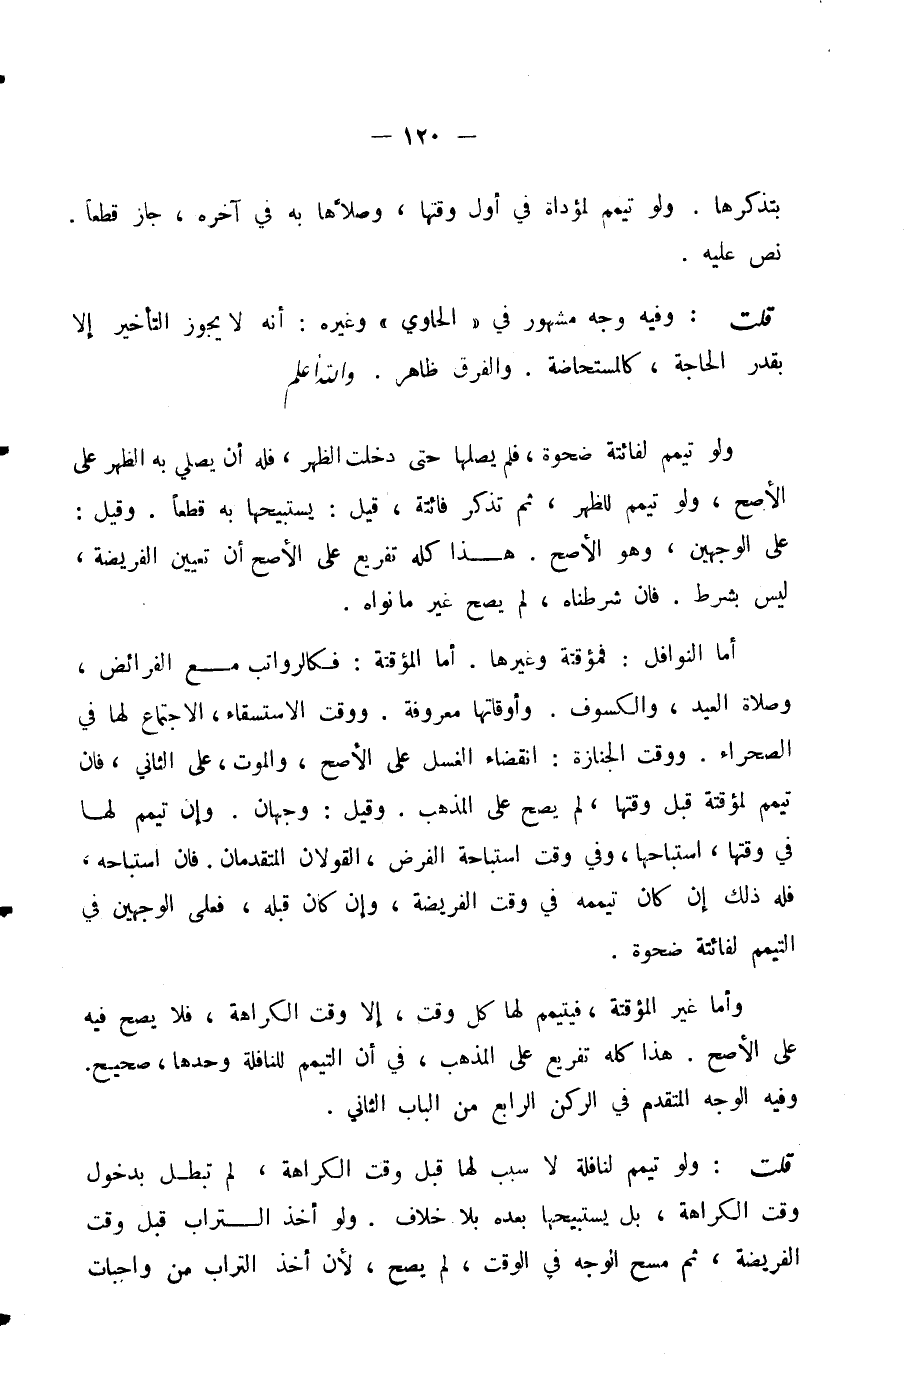 — ١٢٠ —
بتذكرها . ولو تيمم لمؤداة في أول وقتها ، وصلاَّها به في آخره ، جاز قطعاً .
نص عليه .
قلت : وفيه وجه مشهور في « الحاوي » وغيره : أنه لا يجوز التأخير إلا
بقدر الحاجة ، كالمستحاضة . والفرق ظاهر . والله أعلم
ولو تيمم لفائتة ضحوة ، فلم يصلها حتى دخلت الظهر ، فله أن يصلي به الظهر على
الأصح ، ولو تيمم للظهر ، ثم تذكر فائتة ، قيل : يستبيحها به قطعاً . وقيل :
على الوجهين ، وهو الأصح . هــذا كله تفريع على الأصح أن تعيين الفريضة ،
ليس بشرط . فان شرطناه ، لم يصح غير ما نواه .
أما النوافل : فمؤقتة وغيرها . أما المؤقتة : فـكالرواتب مـع الفرائض ،
وصلاة العيد ، والكسوف . وأوقاتها معروفة . ووقت الاستسقاء ، الاجتماع لها في
الصحراء . ووقت الجنازة : انقضاء الغسل على الأصح ، والموت ، على الثاني ، فان
تيمم لمؤقتة قبل وقتها ، لم يصح على المذهب . وقيل : وجهان . وإن تيمم لهـا
في وقتها ، استباحها ، وفي وقت استباحة الفرض ، القولان المتقدمان . فان استباحه ،
فله ذلك إن كان تيممه في وقت الفريضة ، وإن كان قبله ، فعلى الوجهين في
التيمم لفائتة ضحوة .
وأما غير المؤقتة ، فيتيمم لها كل وقت ، إلا وقت الكراهة ، فلا يصح فيه
على الأصح . هذا كله تفريع على المذهب ، في أن التيمم للنافلة وحدها ، صحيح .
وفيه الوجه المتقدم في الركن الرابع من الباب الثاني .
قلت : ولو تيمم لنافلة لا سبب لها قبل وقت الكراهة ، لم تبطـل بدخول
وقت الكراهة ، بل يستبيحها بعده بلا خلاف . ولو أخذ الــتراب قبل وقت
الفريضة ، ثم مسح الوجه في الوقت ، لم يصح ، لأن أخذ التراب من واجبات